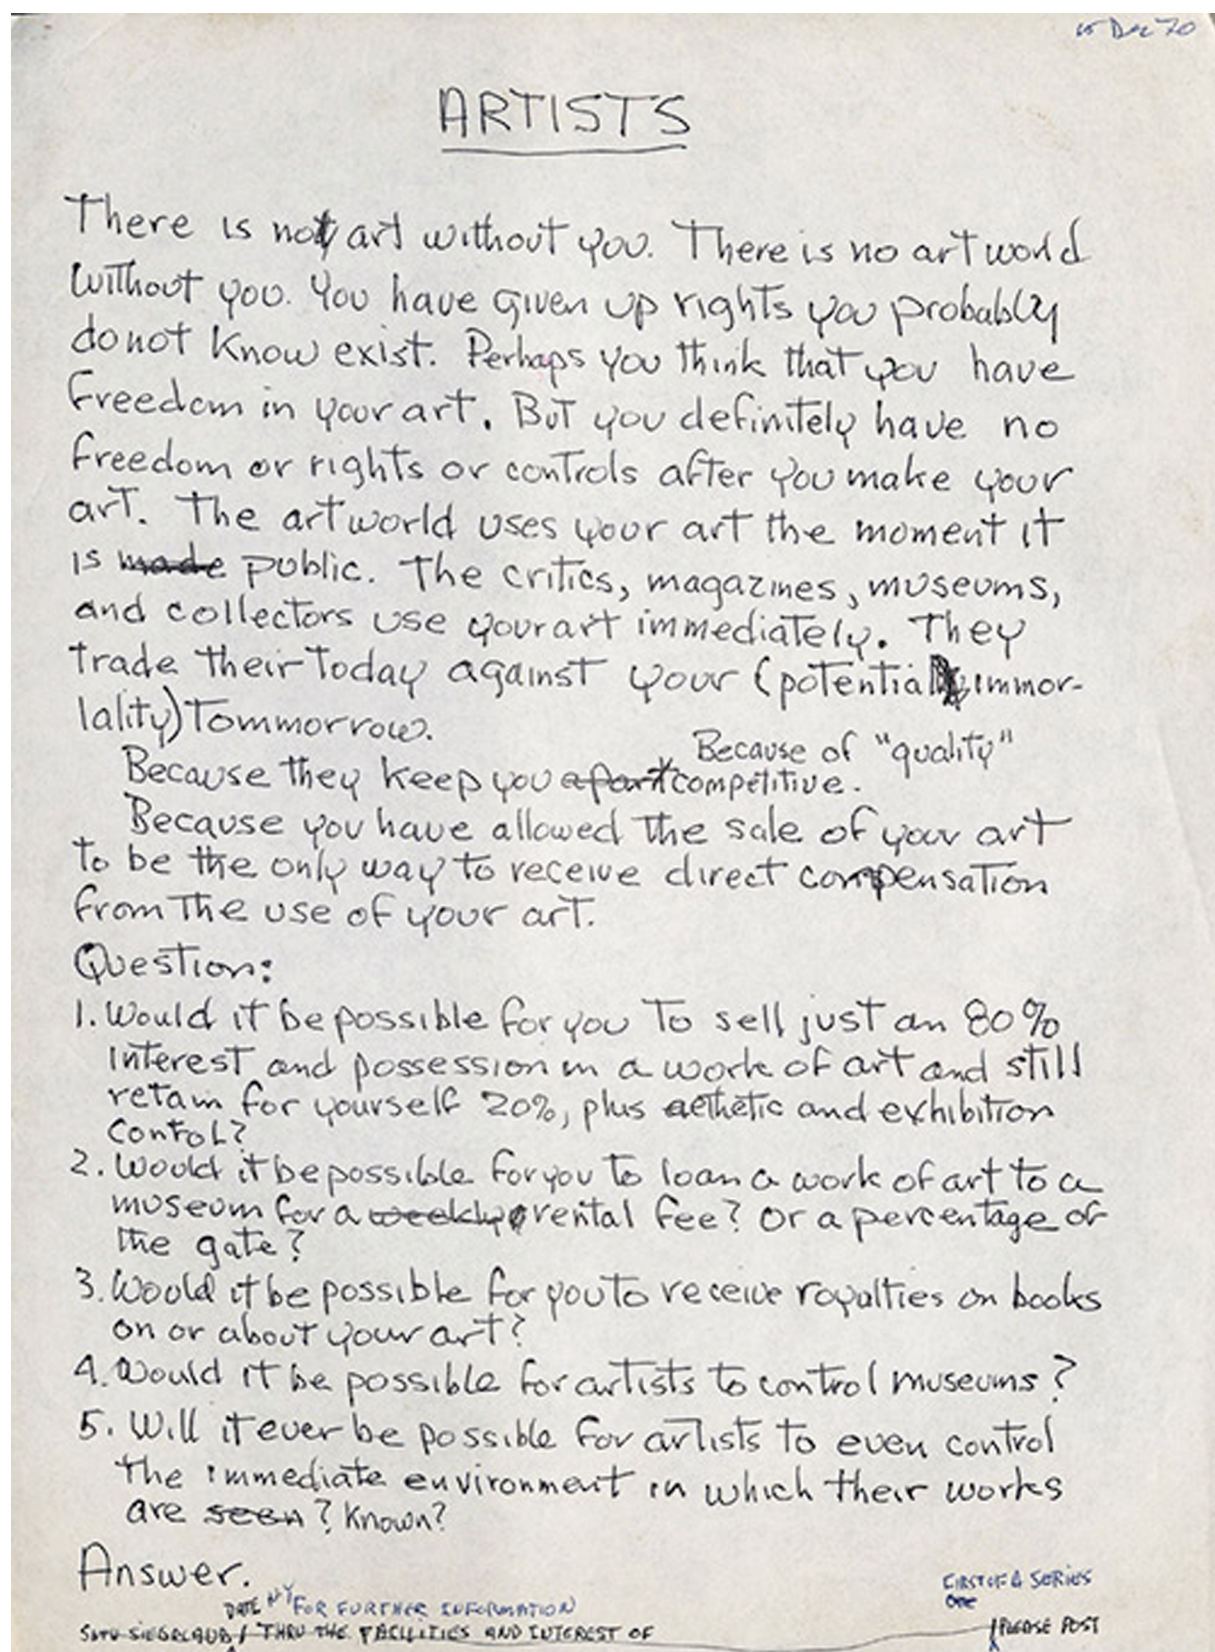 15 Dec 70
ARTISTS
There is not art without you. There is no art world
without you. You have given up rights you probably
do not know exist. Perhaps you think that you have
freedom in your art. But you definitely have no
freedom or rights or controls after you make your
art. The art world uses your art the moment it
is made public. The critics, magazines, museums,
and collectors use your art immediately. They
trade their today against your (potential immor-
lality) Tommorrow.
Because of "quality"
Because they keep you apart competitive.
Because you have allowed the sale of your art
to be the only way to receive direct compensation
from the use of your art.
Question:
1. Would it be possible for you to sell just an 80%
interest and possession in a work of art and still
retain for yourself 20%, plus aethetic and exhibition
contol?
2. Would it be possible for you to loan a work of art to a
museum for a weekly rental fee? Or a percentage of
the gate?
3. Would it be possible for you to receive royalties on books
on or about your art?
4. Would it be possible for artists to control museums?
5. Will it ever be possible for artists to even control
the immediate environment in which their works
are seen? Known?
Answer.
FIRST OF A SERIES
one
DATE NY FOR FURTHER INFORMATION
SETH SIEGELAUB / THRU THE FACILITIES AND INTEREST OF
/ PLEASE POST